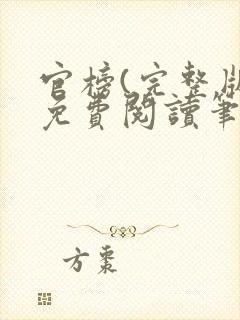 官榜(完整版
免費閱讀筆
方棗